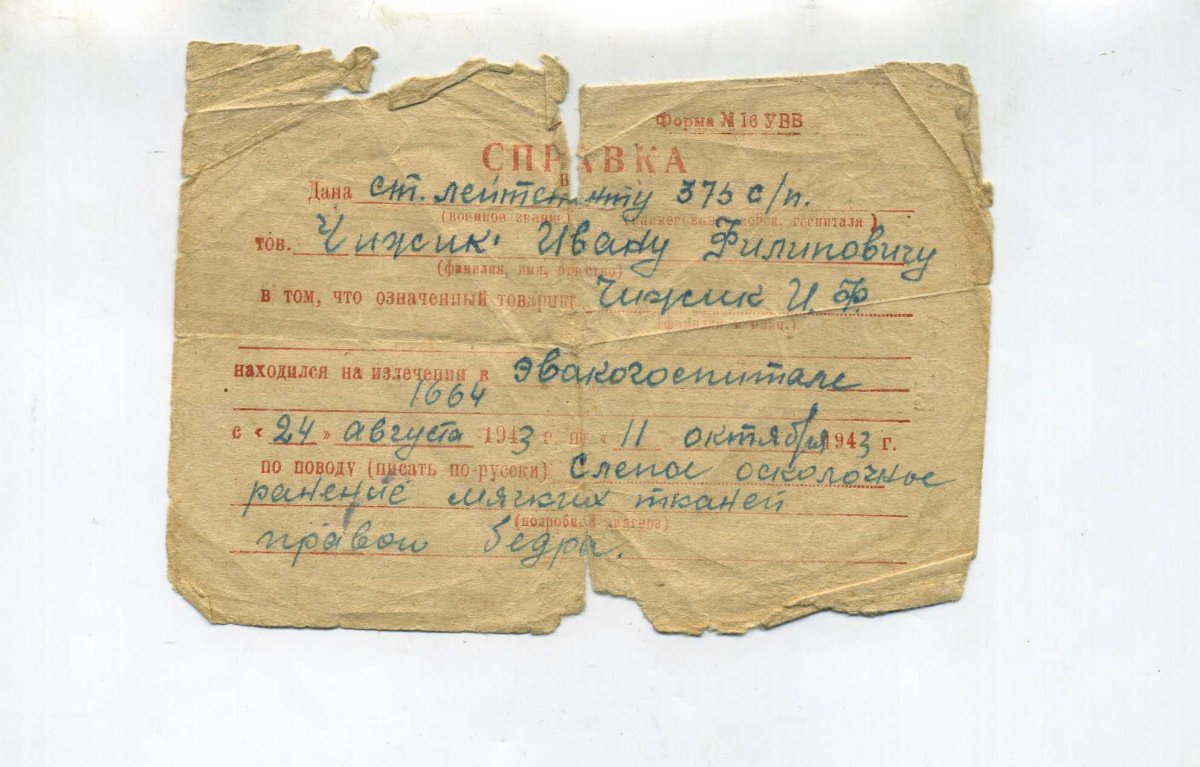 Форма № 16 УВВ
СПРАВКА
Дана ст. лейтенанту 375 с/п.
(военное звание) госпиталя)
тов. Чижик Ивану Филиповичу
(фамилия, имя, отчество)
в том, что означенный товарищ Чижик И. Ф.
находился на излечении в эвакогоспитале
1664
с « 24 » августа 1943 г. по « 11 » октября 1943 г.
по поводу (писать по-русски) Слепое осколочное
ранение мягких тканей
(подробный диагноз)
правого бедра.